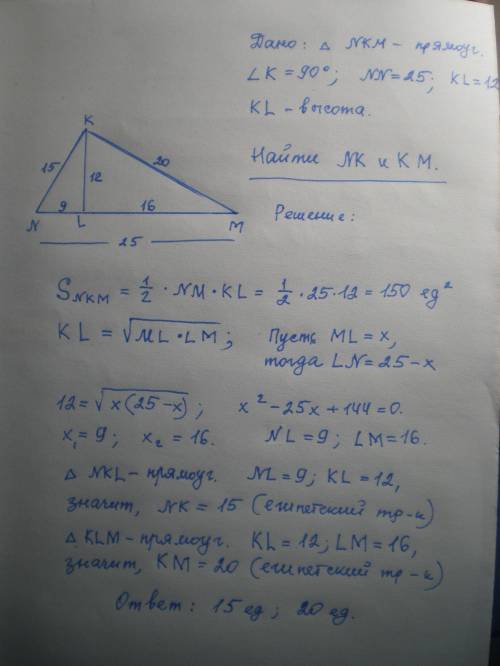 Дано: △ NKM – прямоуг.
∠K = 90°; NN = 25; KL = 12
KL – высота.
Найти NK и KM.
Решение:
K
15
20
12
9
16
N
L
M
25
S_NKM = 1/2 · NM · KL = 1/2 · 25 · 12 = 150 ед²
KL = √(ML · LM); Пусть ML = x,
тогда LN = 25 – x
12 = √(x(25 – x)); x² – 25x + 144 = 0.
x₁ = 9; x₂ = 16. NL = 9; LM = 16.
△ NKL – прямоуг. NL = 9; KL = 12,
значит, NK = 15 (египетский тр-к)
△ KLM – прямоуг. KL = 12; LM = 16,
значит, KM = 20 (египетский тр-к)
Ответ: 15 ед; 20 ед.